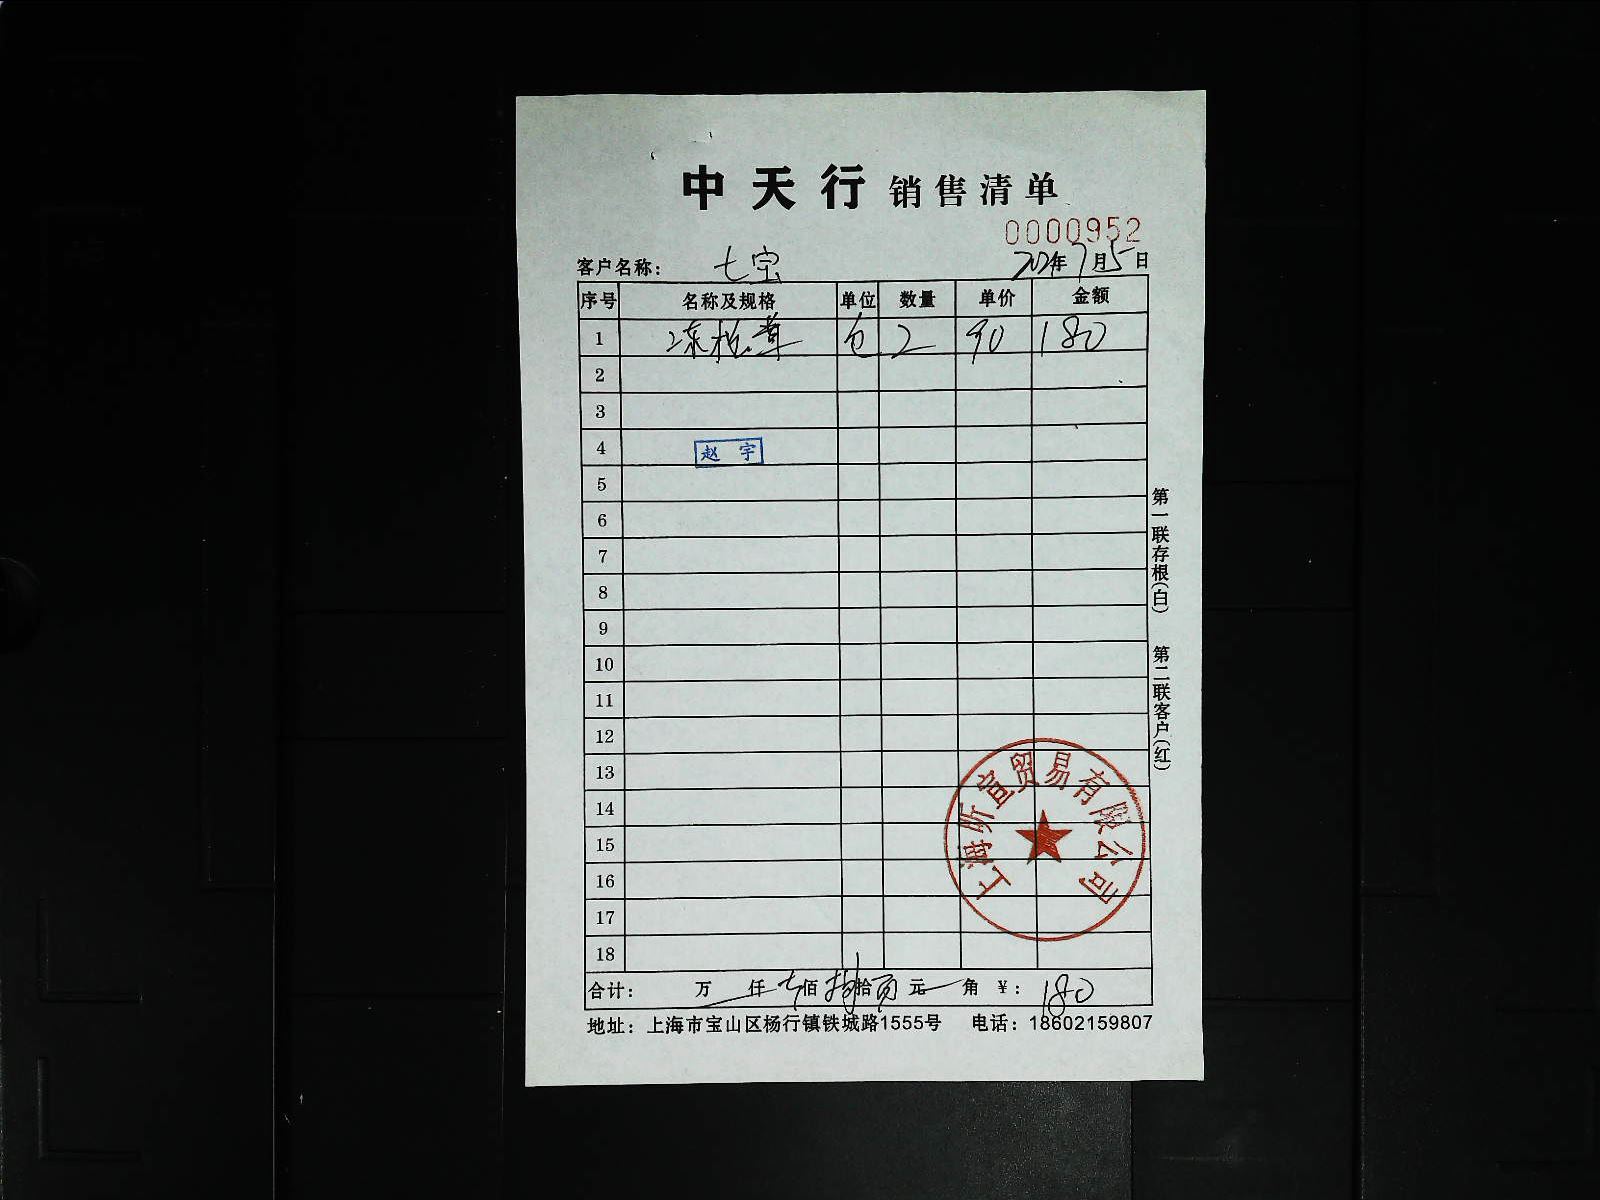 中天行 销售清单
0000952
客户名称： 七宝 年7月5日
序号 名称及规格 单位 数量 单价 金额
1 冻松茸 包 2 90 180
2
3
4 赵宇
5
6
7
8
9
10
11
12
13
14
15
16
17
18
上海昕宜贸易有限公司
合计： 万 仟 佰 拾 元 角 ￥： 180
地址：上海市宝山区杨行镇铁城路1555号 电话：18602159807
第一联存根(白) 第二联客户(红)